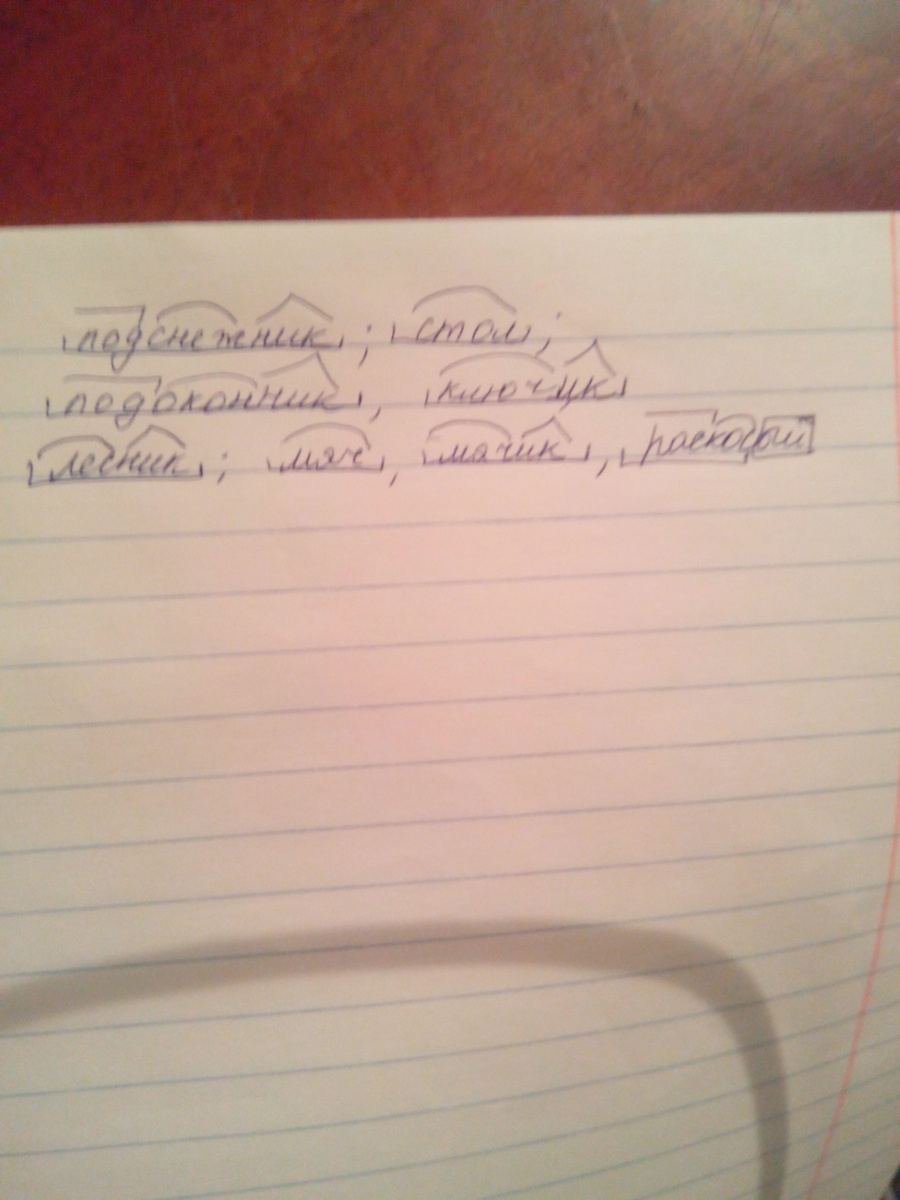 подснежник; стол;
подоконник, ключик
лесник; мяч, мячик, раскосый